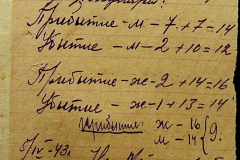 Прибытие – м – 7 + 7 = 14
Убытие – м – 2 + 10 = 12
Прибытие – ж – 2 + 14 = 16
Убытие – ж – 1 + 13 = 14
Прибытие: ж – 16
м – 14 } 9.
5/IV – 43 г.